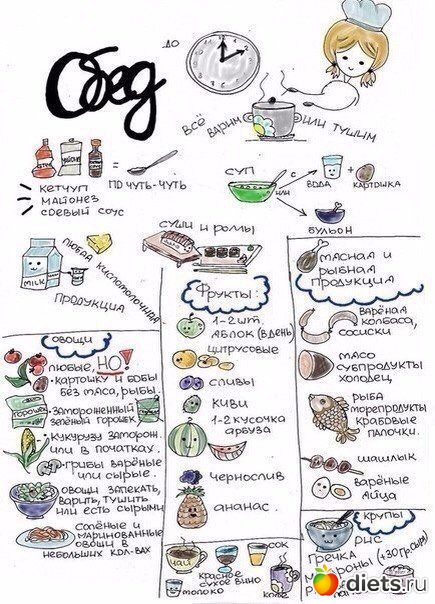 Обед
до
всё варим или тушим
кетчуп
майонез
соевый соус
= по чуть-чуть
суп
с
или
вода
+ картошка
бульон
MILK
любая кисломолочная
продукция
суши и роллы
масная и
рыбная
продукция
варёная
колбаса,
сосиски
масо
субпродукты
холодец
рыба
морепродукты
крабовые
палочки.
шашлык
варёные
яйца
Фрукты:
1-2 шт.
яблок (в день)
цитрусовые
сливы
киви
1-2 кусочка
арбуза
чернослив
ананас.
овощи
любые, НО!
• картошку и бобы
без маса, рыбы.
горошек
• замороженный
зелёный горошек
• кукурузу заморож.
или в початках.
-грибы варёные
или сырые.
овощи запекать,
варить, тушить
или есть сырыми
солёные и
маринованные
овощи в
небольших кол-вах
чай
красное
сухое вино
сок
молоко
кофе
крупы
рис
гречка
(+30гр.сыра)
diets.ru